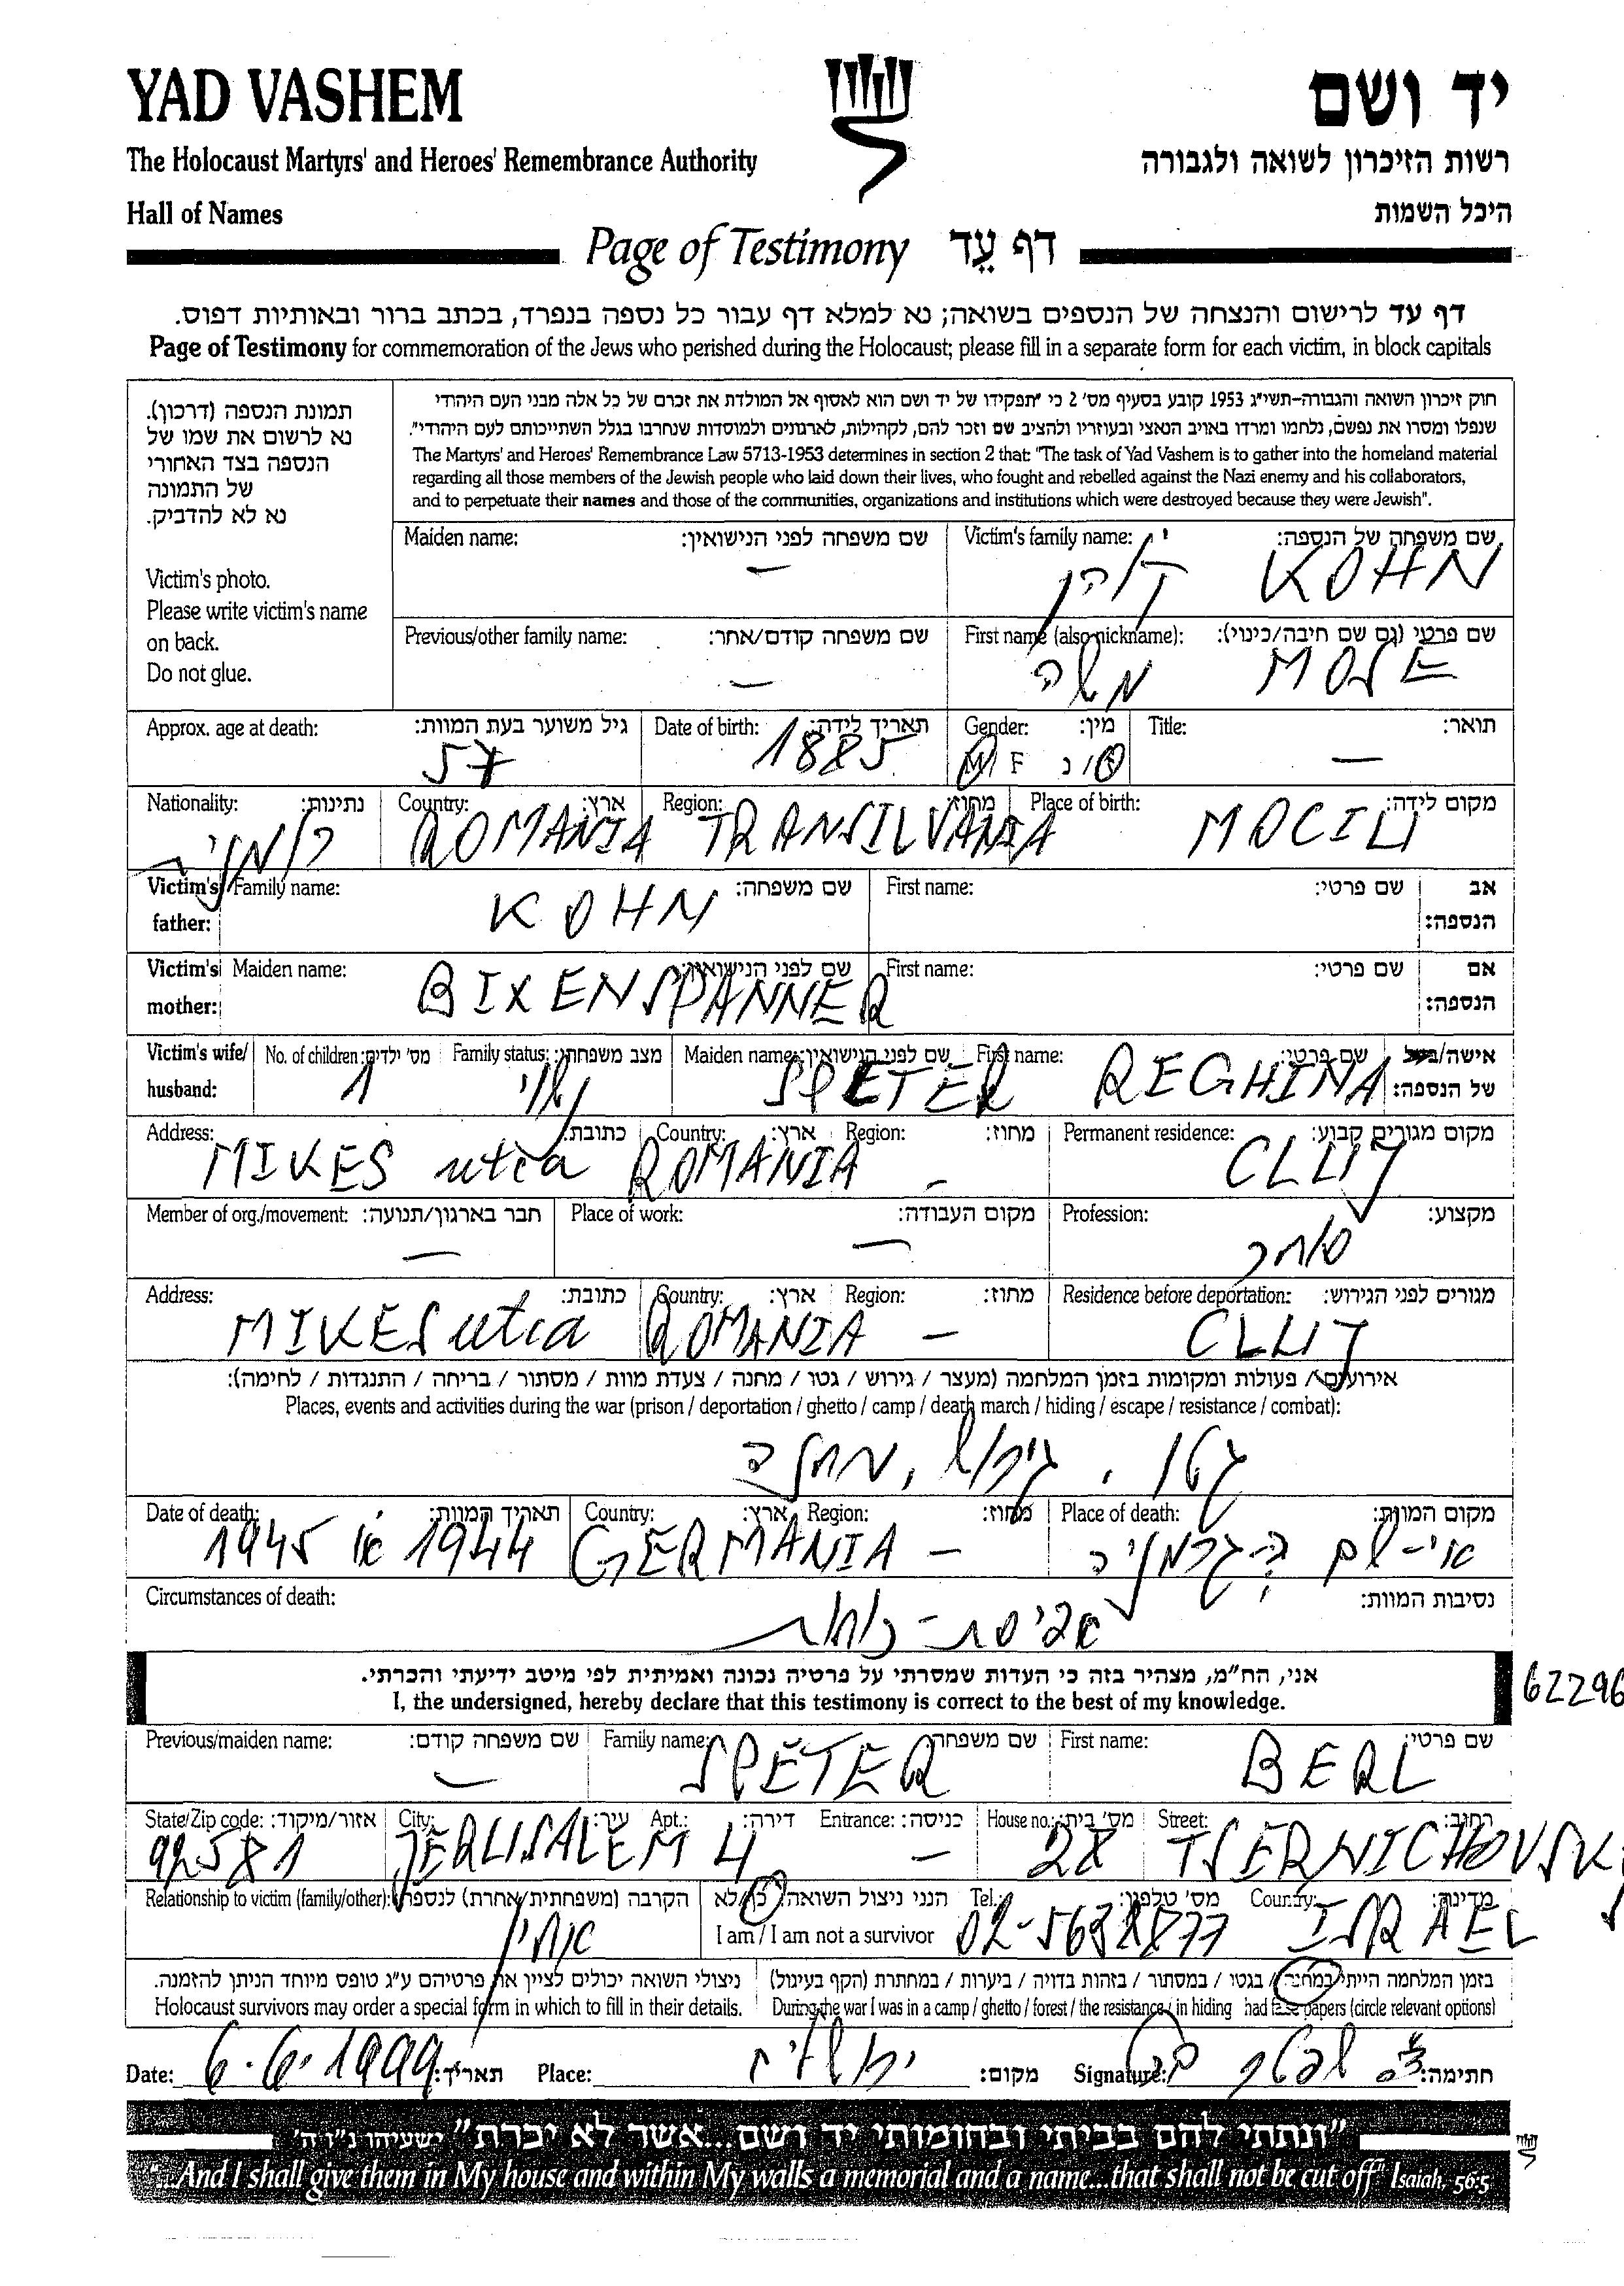 YAD VASHEM יד ושם
The Holocaust Martyrs' and Heroes' Remembrance Authority רשות הזיכרון לשואה ולגבורה
Hall of Names היכל השמות
Page of Testimony דף עֵד
דף עד לרישום והנצחה של הנספים בשואה; נא למלא דף עבור כל נספה בנפרד, בכתב ברור ובאותיות דפוס.
Page of Testimony for commemoration of the Jews who perished during the Holocaust; please fill in a separate form for each victim, in block capitals
תמונת הנספה (דרכון).
נא לרשום את שמו של
הנספה בצד האחורי
של התמונה
נא לא להדביק.
Victim's photo.
Please write victim's name
on back.
Do not glue.
חוק זיכרון השואה והגבורה-תשי"ג 1953 קובע בסעיף מס' 2 כי "תפקידו של יד ושם הוא לאסוף אל המולדת את זכרם של כל אלה מבני העם היהודי
שנפלו ומסרו את נפשם, נלחמו ומרדו באויב הנאצי ובעוזריו ולהציב שם וזכר להם, לקהילות, לארגונים ולמוסדות שנחרבו בגלל השתייכותם לעם היהודי".
The Martyrs' and Heroes' Remembrance Law 5713-1953 determines in section 2 that: "The task of Yad Vashem is to gather into the homeland material
regarding all those members of the Jewish people who laid down their lives, who fought and rebelled against the Nazi enemy and his collaborators,
and to perpetuate their names and those of the communities, organizations and institutions which were destroyed because they were Jewish".
Maiden name: שם משפחה לפני הנישואין: Victim's family name: שם משפחה של הנספה:
— KOHN
Previous/other family name: שם משפחה קודם/אחר: First name (also nickname): שם פרטי (גם שם חיבה/כינוי):
— משה MOSE
Approx. age at death: גיל משוער בעת המוות: Date of birth: תאריך לידה: Gender: מין: Title: תואר:
57 1885 M F ז/נ —
Nationality: נתינות: Country: ארץ: Region: מחוז: Place of birth: מקום לידה:
רומנית ROMANIA TRANSILVANIA MOCIU
Victim's father: Family name: שם משפחה: First name: שם פרטי: אב הנספה:
KOHN
Victim's mother: Maiden name: שם לפני הנישואין: First name: שם פרטי: אם הנספה:
BIXENSPANNER
Victim's wife/ husband: No. of children: מס' ילדים: Family status: מצב משפחתי: Maiden name: שם לפני הנישואין: First name: שם פרטי: אישה/בעל של הנספה:
1 נשוי SPETER REGHINA
Address: כתובת: Country: ארץ: Region: מחוז: Permanent residence: מקום מגורים קבוע:
MIKES utca ROMANIA — CLUJ
Member of org./movement: חבר בארגון/תנועה: Place of work: מקום העבודה: Profession: מקצוע:
— — סוחר
Address: כתובת: Country: ארץ: Region: מחוז: Residence before deportation: מגורים לפני הגירוש:
MIKES utca ROMANIA — CLUJ
אירועים / פעולות ומקומות בזמן המלחמה (מעצר / גירוש / גטו / מחנה / צעדת מוות / מסתור / בריחה / התנגדות / לחימה):
Places, events and activities during the war (prison / deportation / ghetto / camp / death march / hiding / escape / resistance / combat):
גטו, גירוש, מחנה
Date of death: תאריך המוות: Country: ארץ: Region: מחוז: Place of death: מקום המוות:
1944 או 1945 GERMANIA — אי-שם בגרמניה
Circumstances of death: נסיבות המוות:
אני, הח"מ, מצהיר בזה כי העדות שמסרתי על פרטיה נכונה ואמיתית לפי מיטב ידיעתי והכרתי.
I, the undersigned, hereby declare that this testimony is correct to the best of my knowledge.
62296
Previous/maiden name: שם משפחה קודם: Family name: שם משפחה: First name: שם פרטי:
— SPETER BERL
State/Zip code: אזור/מיקוד: City: עיר: Apt.: דירה: Entrance: כניסה: House no.: מס' בית: Street: רחוב:
92581 JERUSALEM 4 — 28 TSERNICHOVSKI
Relationship to victim (family/other): הקרבה (משפחתית/אחרת) לנספה: הנני ניצול השואה: כן/לא Tel.: מס' טלפון: Country: מדינה:
אחיין I am / I am not a survivor 02-5638877 ISRAEL
ניצולי השואה יכולים לציין את פרטיהם ע"ג טופס מיוחד הניתן להזמנה. בזמן המלחמה הייתי במחנה / בגטו / במסתור / בזהות בדויה / ביערות / במחתרת (הקף בעיגול)
Holocaust survivors may order a special form in which to fill in their details. During the war I was in a camp / ghetto / forest / the resistance / in hiding had false papers (circle relevant options)
Date: 6.6.1999 תאריך: Place: ירושלים מקום: Signature: חתימה:
"ונתתי להם בביתי ובחומותי יד ושם...אשר לא יכרת" ישעיהו נ"ו ה'
"...And I shall give them in My house and within My walls a memorial and a name...that shall not be cut off" Isaiah, 56:5